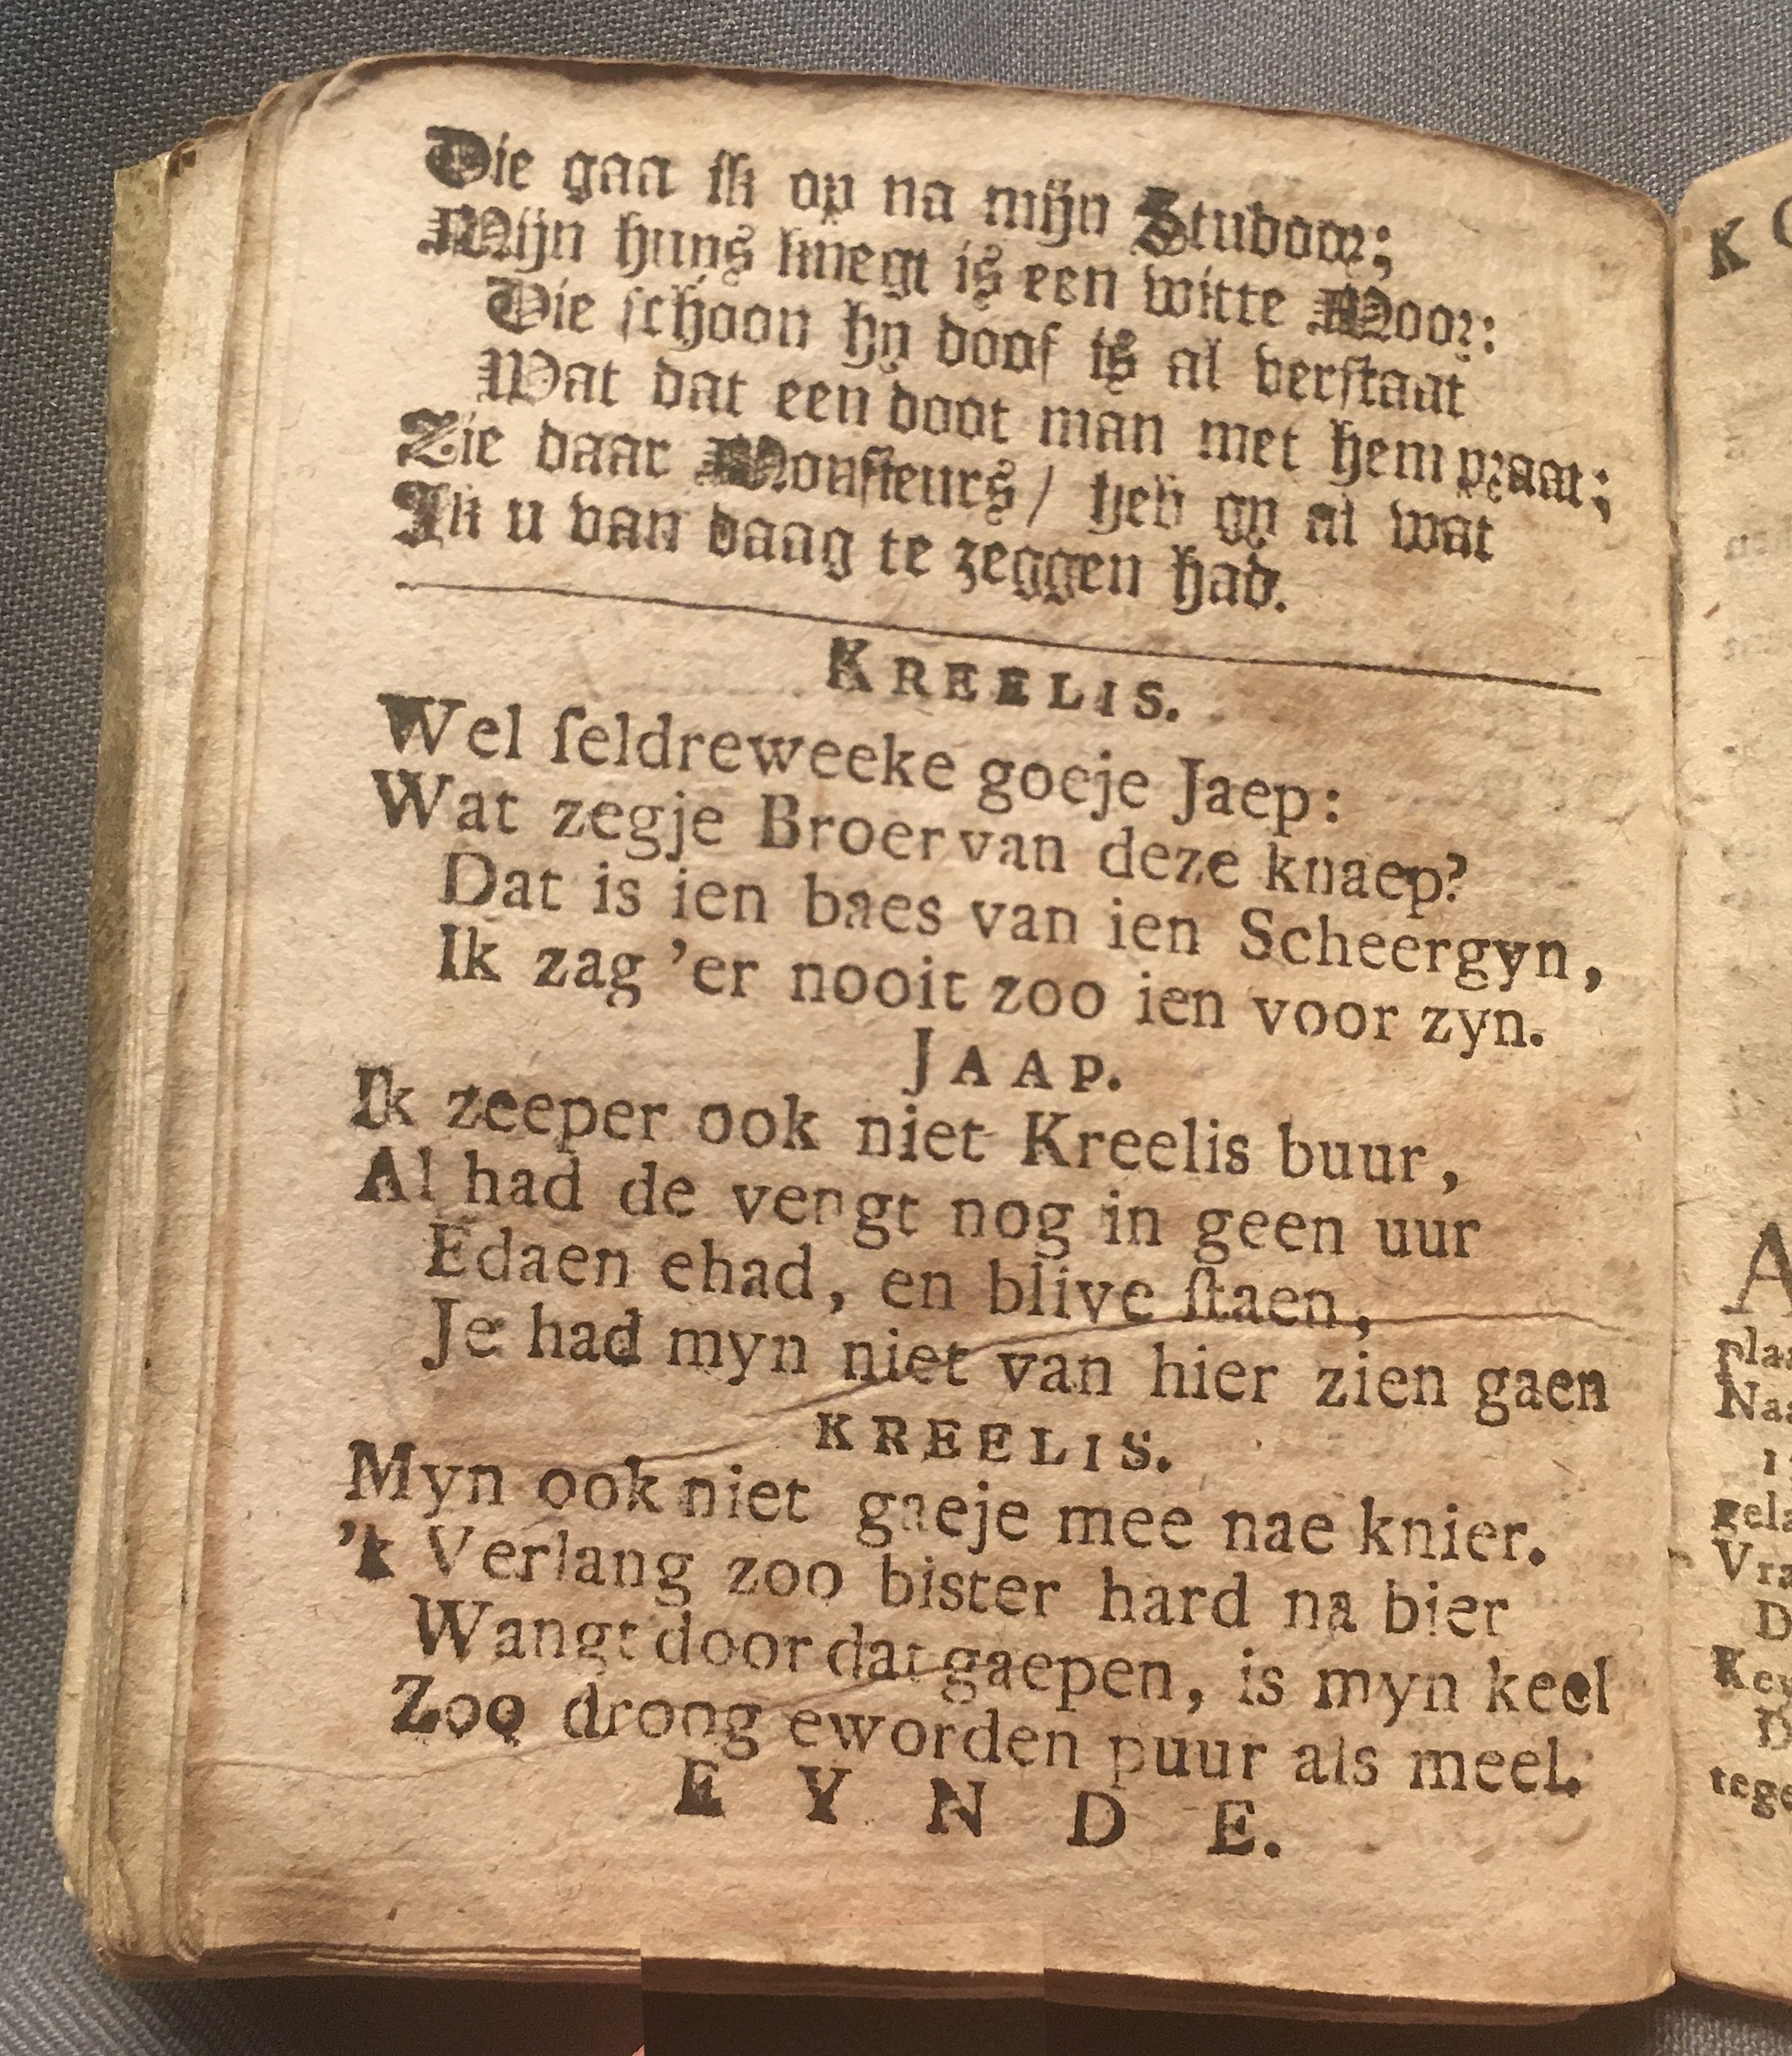 Die gaa ik op na mijn Studoor;
Mijn huys knegt is een witte Moor:
Die schoon hy doof is al verstaat
Wat dat een doot man met hem praat;
Zie daar Monsieurs / heb gy al wat
Ik u van daag te zeggen had.
KREELIS.
Wel ſeldreweeke goeje Jaep:
Wat zegje Broer van deze knaep?
Dat is ien baes van ien Scheergyn,
Ik zag 'er nooit zoo ien voor zyn.
JAAP.
Ik zeeper ook niet Kreelis buur,
Al had de vengt nog in geen uur
Edaen ehad, en blive ſtaen,
Je had myn niet van hier zien gaen
KREELIS.
Myn ook niet gaeje mee nae knier.
'k Verlang zoo bister hard na bier
Wangt door dat gaepen, is myn keel
Zoo droog eworden puur als meel.
EYNDE.
K
A
plaa
Naa
gela
Vra
D
Key
D
tege